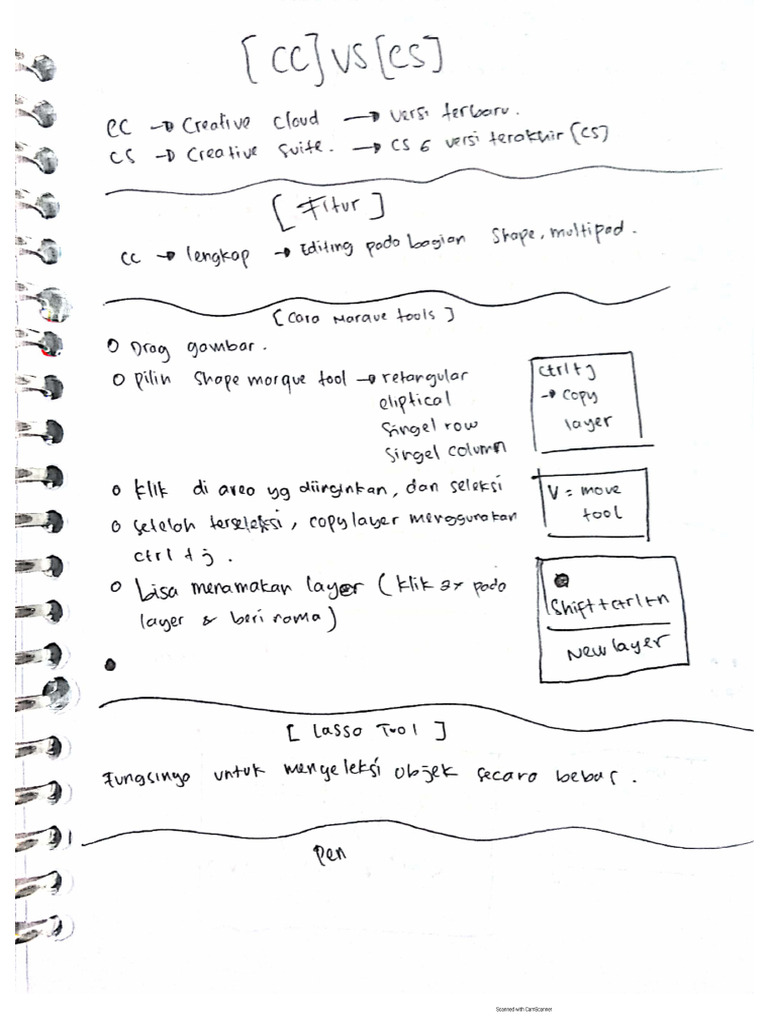 [CC] VS [CS]
CC → Creative Cloud → Versi terbaru.
CS → Creative Suite. → CS 6 versi terakhir (CS)
[Fitur]
CC → lengkap → Editing pada bagian Shape, multipad.
[Cara Marque tools]
Drag gambar.
Pilih Shape marque tool → retangular
eliptical
Singel row
Singel column
Ctrl+j
→ copy
layer
Klik di area yg diinginkan, dan seleksi
Setelah terseleksi, copy layer menggunakan
ctrl + j.
V = move
tool
Bisa menamakan layer (klik 2x pada
layer & beri nama)
Shift+ctrl+n
New layer
[Lasso Tool]
Fungsinya untuk menyeleksi objek secara bebas.
Pen
Scanned with CamScanner